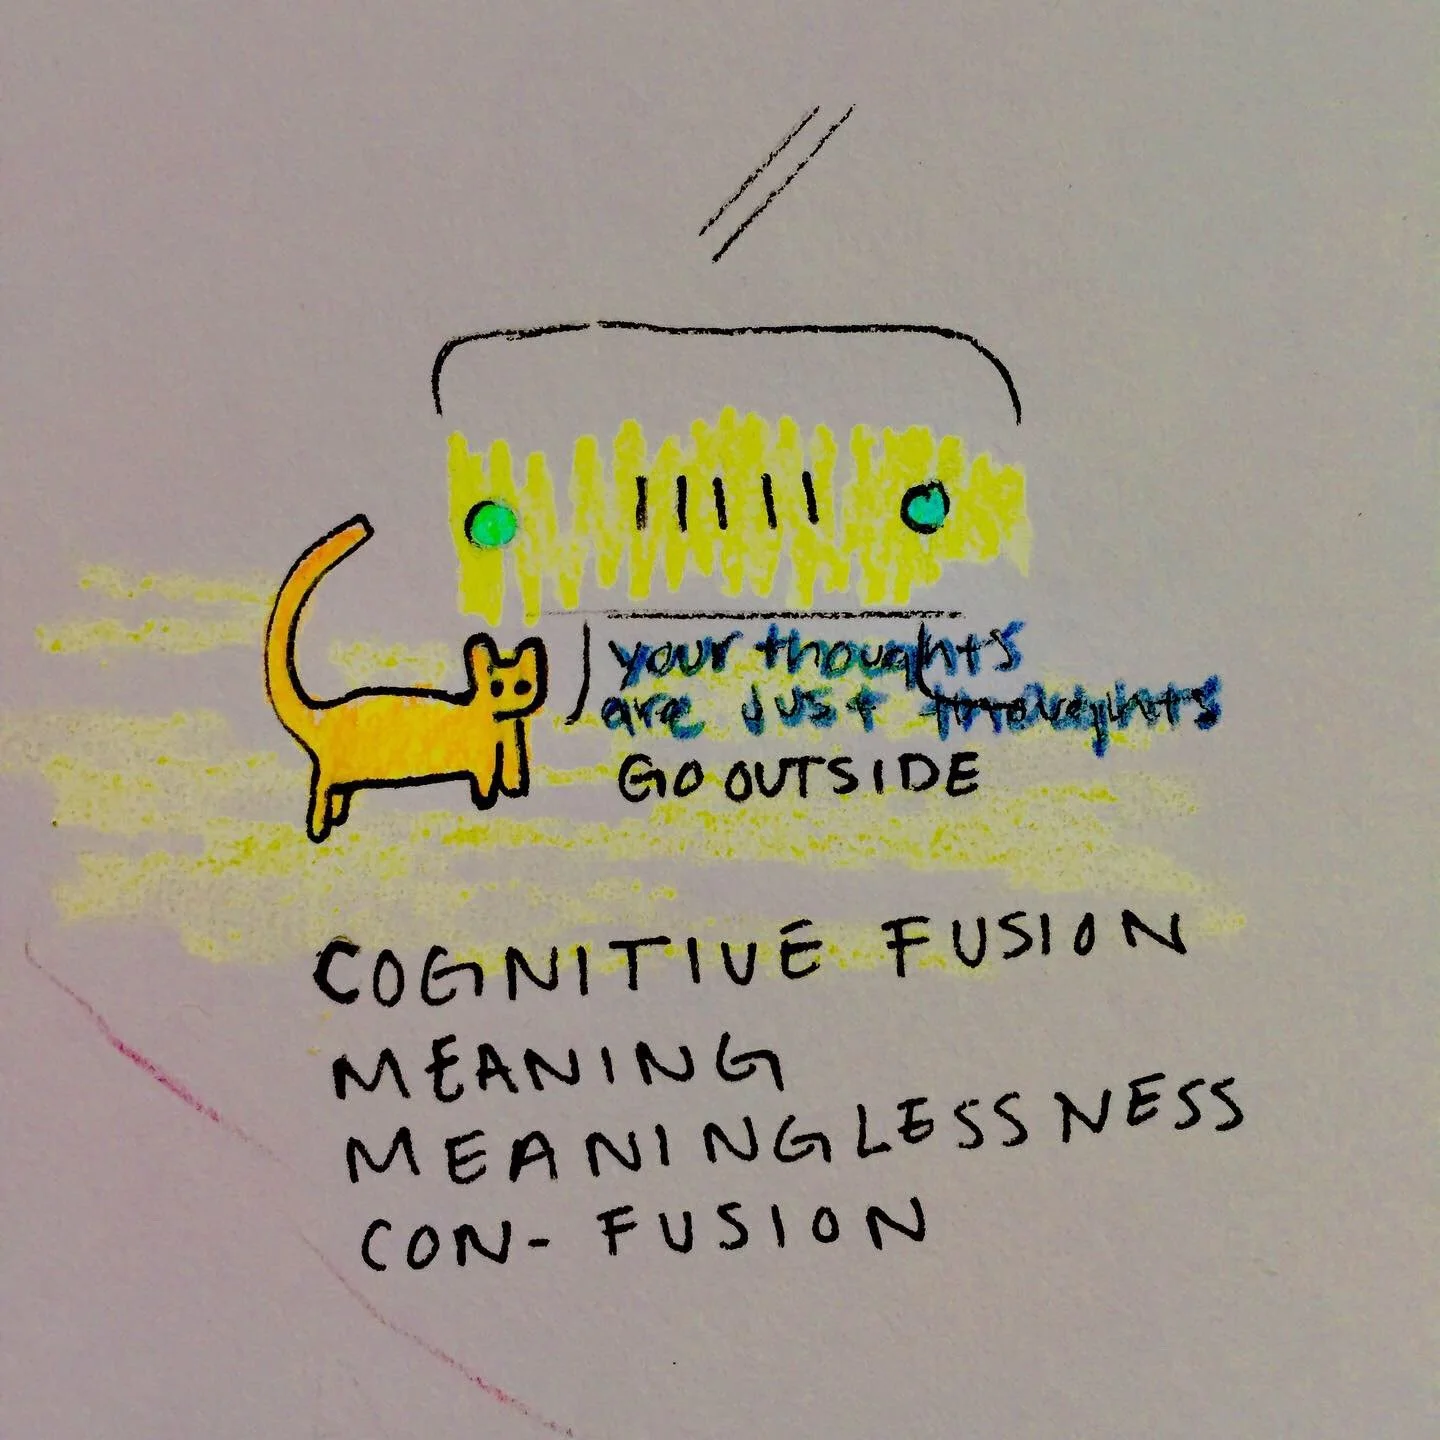 your thoughts
are just thoughts
GO OUTSIDE
COGNITIVE FUSION
MEANING
MEANINGLESSNESS
CON-FUSION